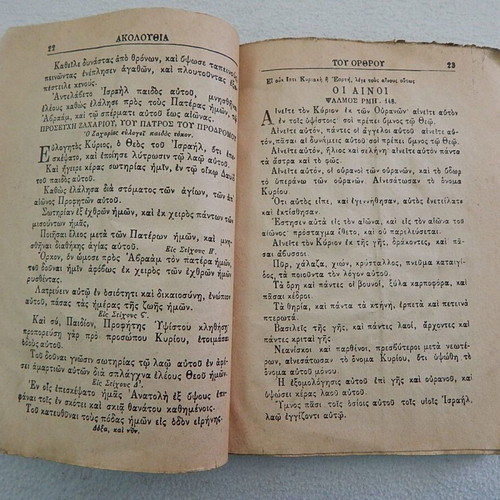 22 ΑΚΟΛΟΥΘΙΑ
Καθεῖλε δυνάστας ἀπὸ θρόνων, καὶ ὕψωσε ταπεινοὺς
πεινῶντας ἐνέπλησεν ἀγαθῶν, καὶ πλουτοῦντας
κενούς.
Ἀντελάβετο Ἰσραὴλ παιδὸς αὐτοῦ, μνησθῆναι
ἐλέους καθὼς ἐλάλησε πρὸς τοὺς Πατέρας ἡμῶν, τῷ
Ἀβραάμ, καὶ τῷ σπέρματι αὐτοῦ ἕως αἰῶνος.
ΠΡΟΣΕΥΧΗ ΖΑΧΑΡΙΟΥ, ΤΟΥ ΠΑΤΡΟΣ ΤΟΥ ΠΡΟΔΡΟΜΟΥ
Ὁ Ζαχαρίας εὐλογεῖ παιδὸς τόκον.
Εὐλογητὸς Κύριος, ὁ Θεὸς τοῦ Ἰσραήλ, ὅτι
ἐπεσκέψατο, καὶ ἐποίησε λύτρωσιν τῷ λαῷ αὐτοῦ.
Καὶ ἤγειρε κέρας σωτηρίας ἡμῖν, ἐν τῷ οἴκῳ Δαυῒδ
τοῦ παιδὸς αὐτοῦ.
Καθὼς ἐλάλησα διὰ στόματος τῶν ἁγίων, τῶν ἀπ'
αἰῶνος Προφητῶν αὐτοῦ.
Σωτηρίαν ἐξ ἐχθρῶν ἡμῶν, καὶ ἐκ χειρὸς πάντων τῶν
μισούντων ἡμᾶς,
Ποιῆσαι ἔλεος μετὰ τῶν Πατέρων ἡμῶν, καὶ μνη-
σθῆναι διαθήκης ἁγίας αὐτοῦ.
Εἰς Στίχους Η΄.
Ὅρκον, ὃν ὤμοσε πρὸς Ἀβραὰμ τὸν πατέρα ἡμῶν,
τοῦ δοῦναι ἡμῖν ἀφόβως ἐκ χειρὸς τῶν ἐχθρῶν ἡμῶν
ρυσθέντας.
Λατρεύειν αὐτῷ ἐν ὁσιότητι καὶ δικαιοσύνῃ, ἐνώπιον
αὐτοῦ, πάσας τὰς ἡμέρας τῆς ζωῆς ἡμῶν.
Εἰς Στίχους ς΄.
Καὶ σύ, Παιδίον, Προφήτης Ὑψίστου κληθήσῃ·
προπορεύσῃ γὰρ πρὸ προσώπου Κυρίου, ἑτοιμάσαι
ὁδοὺς αὐτοῦ.
Τοῦ δοῦναι γνῶσιν σωτηρίας τῷ λαῷ αὐτοῦ ἐν ἀφέ-
σει ἁμαρτιῶν αὐτῶν διὰ σπλάγχνα ἐλέους Θεοῦ ἡμῶν.
Εἰς Στίχους Δ΄.
Ἐν οἷς ἐπισκέψατο ἡμᾶς Ἀνατολὴ ἐξ ὕψους ἐπι-
φάναι τοῖς ἐν σκότει καὶ σκιᾷ θανάτου καθημένοις.
Τοῦ κατευθῦναι τοὺς πόδας ἡμῶν εἰς ὁδὸν εἰρήνης.
Δόξα, καὶ νῦν.
ΤΟΥ ΟΡΘΡΟΥ 23
Εἰ μὲν ἔστι Κυριακὴ ἢ Ἑορτή, λέγε τοὺς αἴνους οὕτως
ΟΙ ΑΙΝΟΙ
ΨΑΛΜΟΣ ΡΜΗ. 148.
Αἰνεῖτε τὸν Κύριον ἐκ τῶν Οὐρανῶν· αἰνεῖτε αὐτὸν
ἐν τοῖς ὑψίστοις· σοὶ πρέπει ὕμνος τῷ Θεῷ.
Αἰνεῖτε αὐτόν, πάντες οἱ ἄγγελοι αὐτοῦ· αἰνεῖτε αὐ-
τόν, πᾶσαι αἱ δυνάμεις αὐτοῦ· σοὶ πρέπει ὕμνος τῷ Θεῷ.
Αἰνεῖτε αὐτόν, ἥλιος καὶ σελήνη· αἰνεῖτε αὐτὸν πάντα
τὰ ἄστρα καὶ τὸ φῶς.
Αἰνεῖτε αὐτόν, οἱ οὐρανοὶ τῶν οὐρανῶν, καὶ τὸ ὕδωρ
τὸ ὑπεράνω τῶν οὐρανῶν. Αἰνεσάτωσαν τὸ ὄνομα
Κυρίου
Ὅτι αὐτὸς εἶπε, καὶ ἐγεννήθησαν, αὐτὸς ἐνετείλατο
καὶ ἐκτίσθησαν.
Ἔστησεν αὐτὰ εἰς τὸν αἰῶνα, καὶ εἰς τὸν αἰῶνα τοῦ
αἰῶνος· πρόσταγμα ἔθετο, καὶ οὐ παρελεύσεται.
Αἰνεῖτε τὸν Κύριον ἐκ τῆς γῆς, δράκοντες, καὶ πᾶ-
σαι ἄβυσσοι
Πῦρ, χάλαζα, χιών, κρύσταλλος, πνεῦμα καταιγί-
δος, τὰ ποιοῦντα τὸν λόγον αὐτοῦ.
Τὰ ὄρη καὶ πάντες οἱ βουνοί, ξύλα καρποφόρα, καὶ
πᾶσαι κέδροι.
Τὰ θηρία, καὶ πάντα τὰ κτήνη, ἑρπετὰ καὶ πετεινὰ
πτερωτά.
Βασιλεῖς τῆς γῆς, καὶ πάντες λαοί, ἄρχοντες καὶ
πάντες κριταὶ γῆς
Νεανίσκοι καὶ παρθένοι, πρεσβύτεροι μετὰ νεωτέ-
ρων, αἰνεσάτωσαν τὸ ὄνομα Κυρίου, ὅτι ὑψώθη τὸ
ὄνομα αὐτοῦ μόνου
Ἡ ἐξομολόγησις αὐτοῦ ἐπὶ γῆς καὶ οὐρανοῦ, καὶ
ὑψώσει κέρας λαοῦ αὐτοῦ.
Ὕμνος πᾶσι τοῖς ὁσίοις αὐτοῦ τοῖς υἱοῖς Ἰσραήλ,
λαῷ ἐγγίζοντι αὐτῷ.